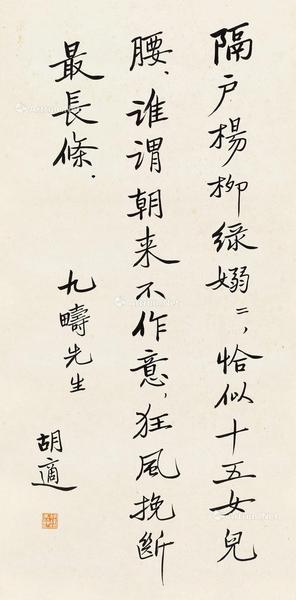 隔户楊柳緑嫋〻，恰似十五女兒
腰、谁谓朝来不作意，狂風挽斷
最長條．
九疇先生
胡適